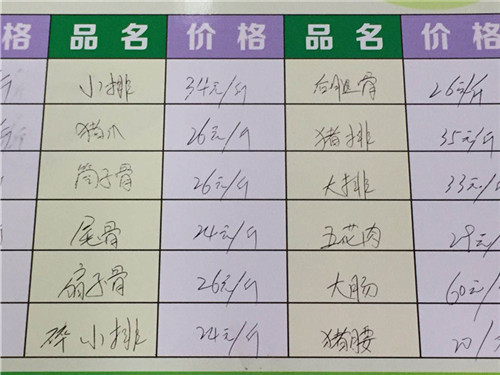 格 品名 价格 品名 价格
小排 34元/斤 26元/斤
猪爪 26元/斤 猪排 35元/斤
筒子骨 26元/斤 大排 33元/斤
尾骨 24元/斤 五花肉 29元/斤
扇子骨 26元/斤 大肠 60元/
碎小排 24元/斤 猪腰 20/